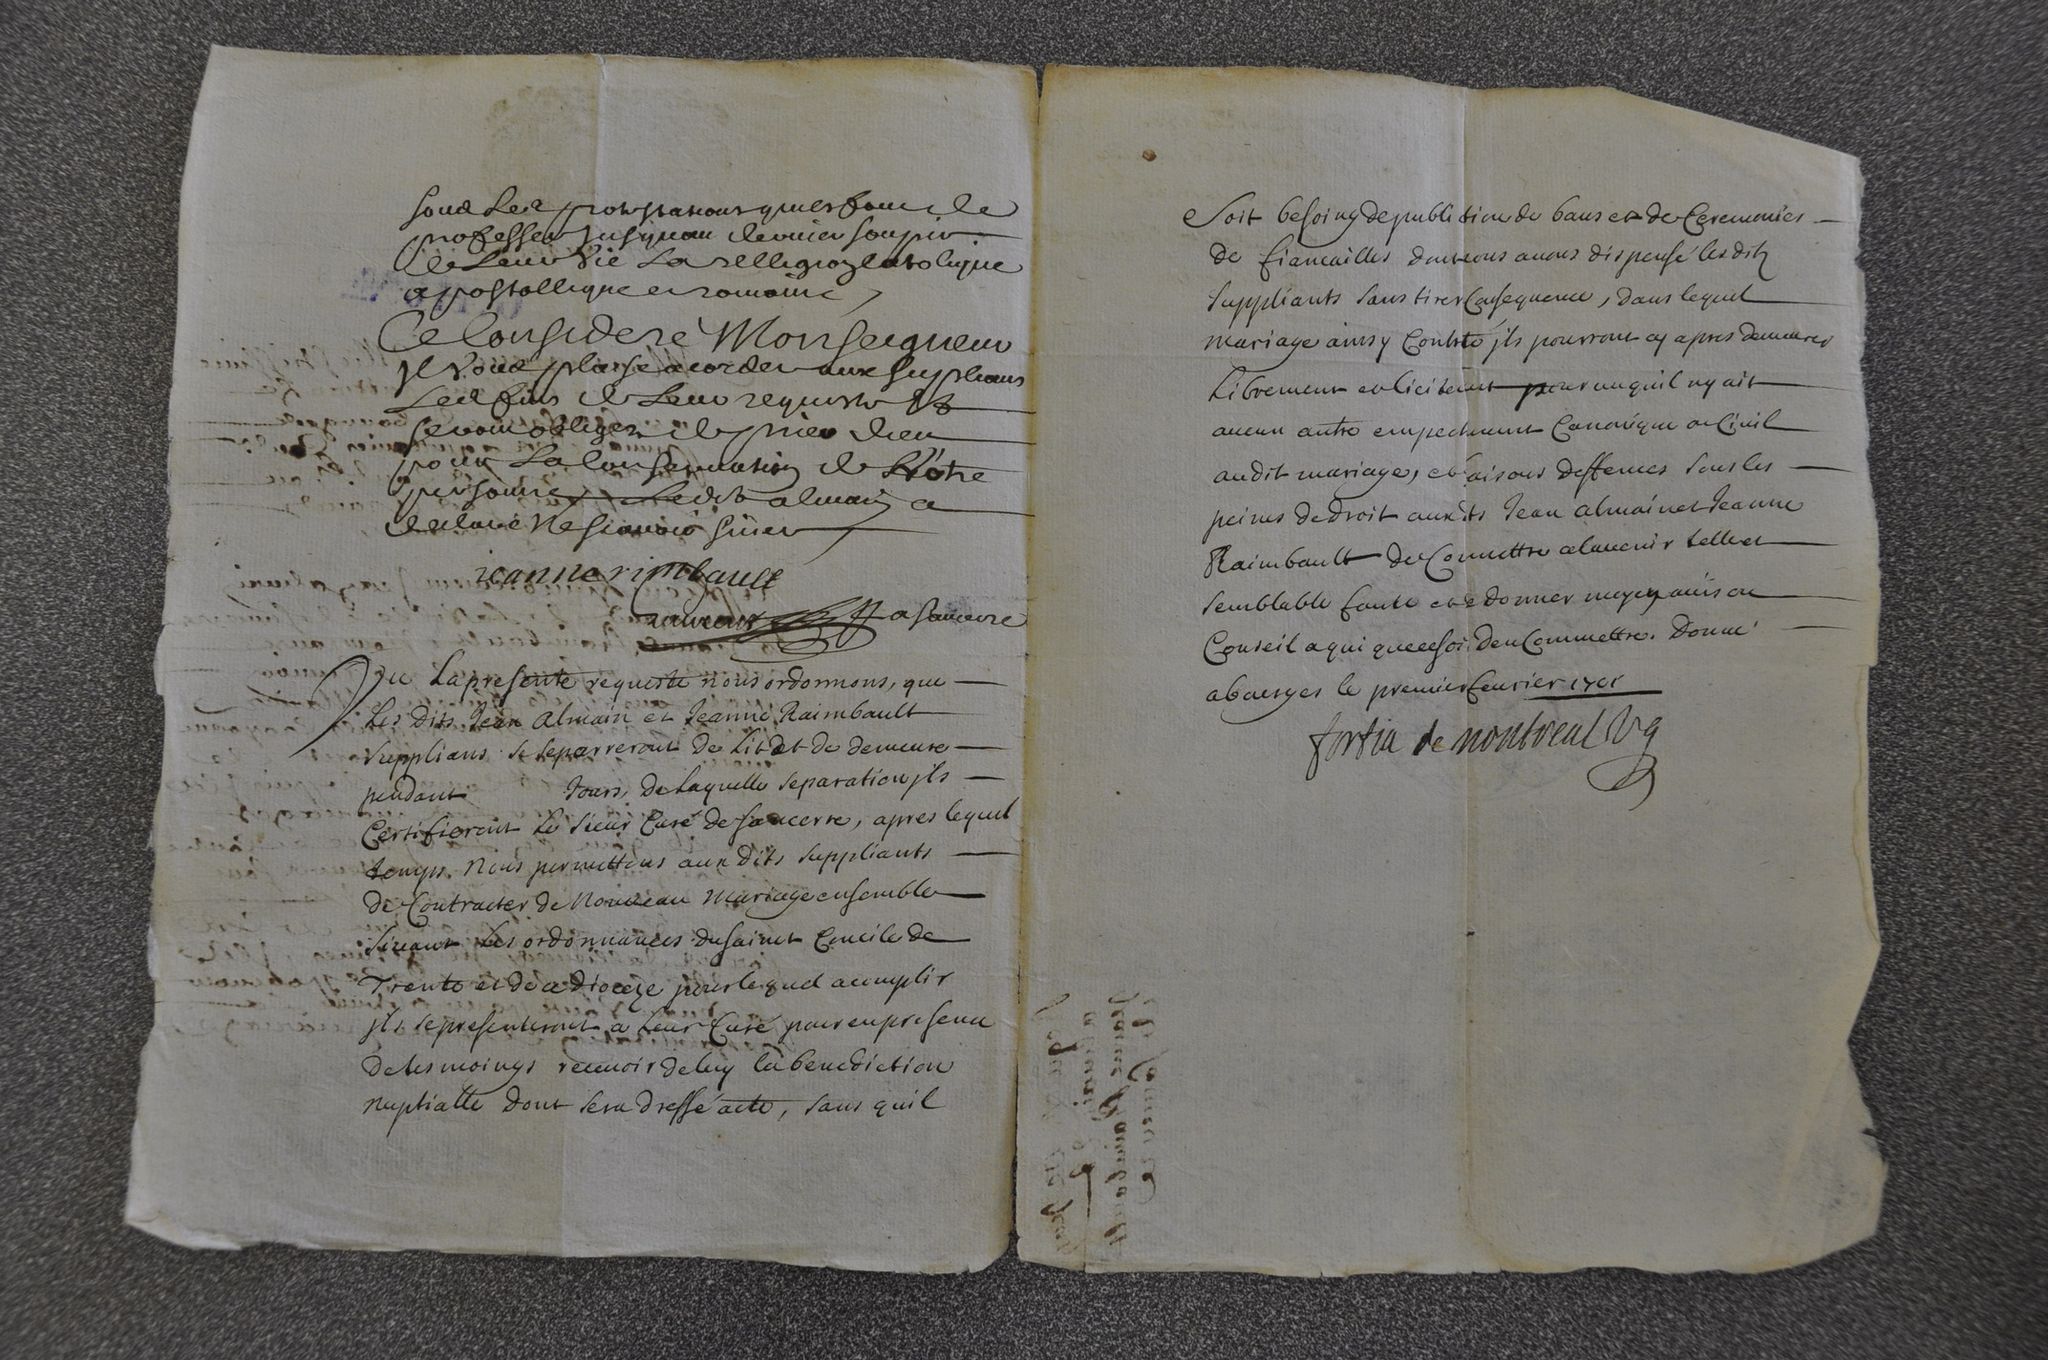 sous les protestations quils font de
professer jusquau dernier soupir
de leur vie la relligion catolique
apostollique et romaine
Ce Consideré Monseigneur
jl vous plaise acorder aux suplians
les fins de leur requeste Ils
seront obliges de prier dieu
pour la Conservation de Vôtre
personne Ledit almain a
declaré ne scavoir signer
jeanne rimbault
a sancerre
Veu la presente requeste nous ordonnons, que
Les dits Jean Almain et Jeanne Raimbault
supplians se separreront de Lit et de demeure
pendant Jours, de laquelle separation jls
Certifieront le sieur Curé de sancerre, apres lequel
temps nous permettons aux dits suppliants
de Contracter de Nouveau mariage ensemble
suivant les ordonnances du sainct Concile de
Trente et de ce diocèze pour lequel acomplir
jls se presenteront a leur Curé pour en presence
de tesmoings recevoir de luy la benediction
nuptialle dont sera dressé acte, sans quil
soit besoing de publication de bans et de Ceremonies
de fiancailles dont nous avons dispensé les dits
suppliants sans tirer Consequence, dans lequel
mariage ainsy Contracté jls pourront cy apres demeurer
librement et licitement pourveu quil ny ait
aucun autre empechement Canonique ou Civil
audit mariage, et faisons deffences sous les
peines de droit auxdits Jean almain et Jeanne
Raimbault de Commettre a lavenir telle et
semblable faute et de donner moyen avis ou
Conseil a qui que ce soit den Commettre. Donné
a bourges le premier fevrier 1701
fortia de montreal Vg